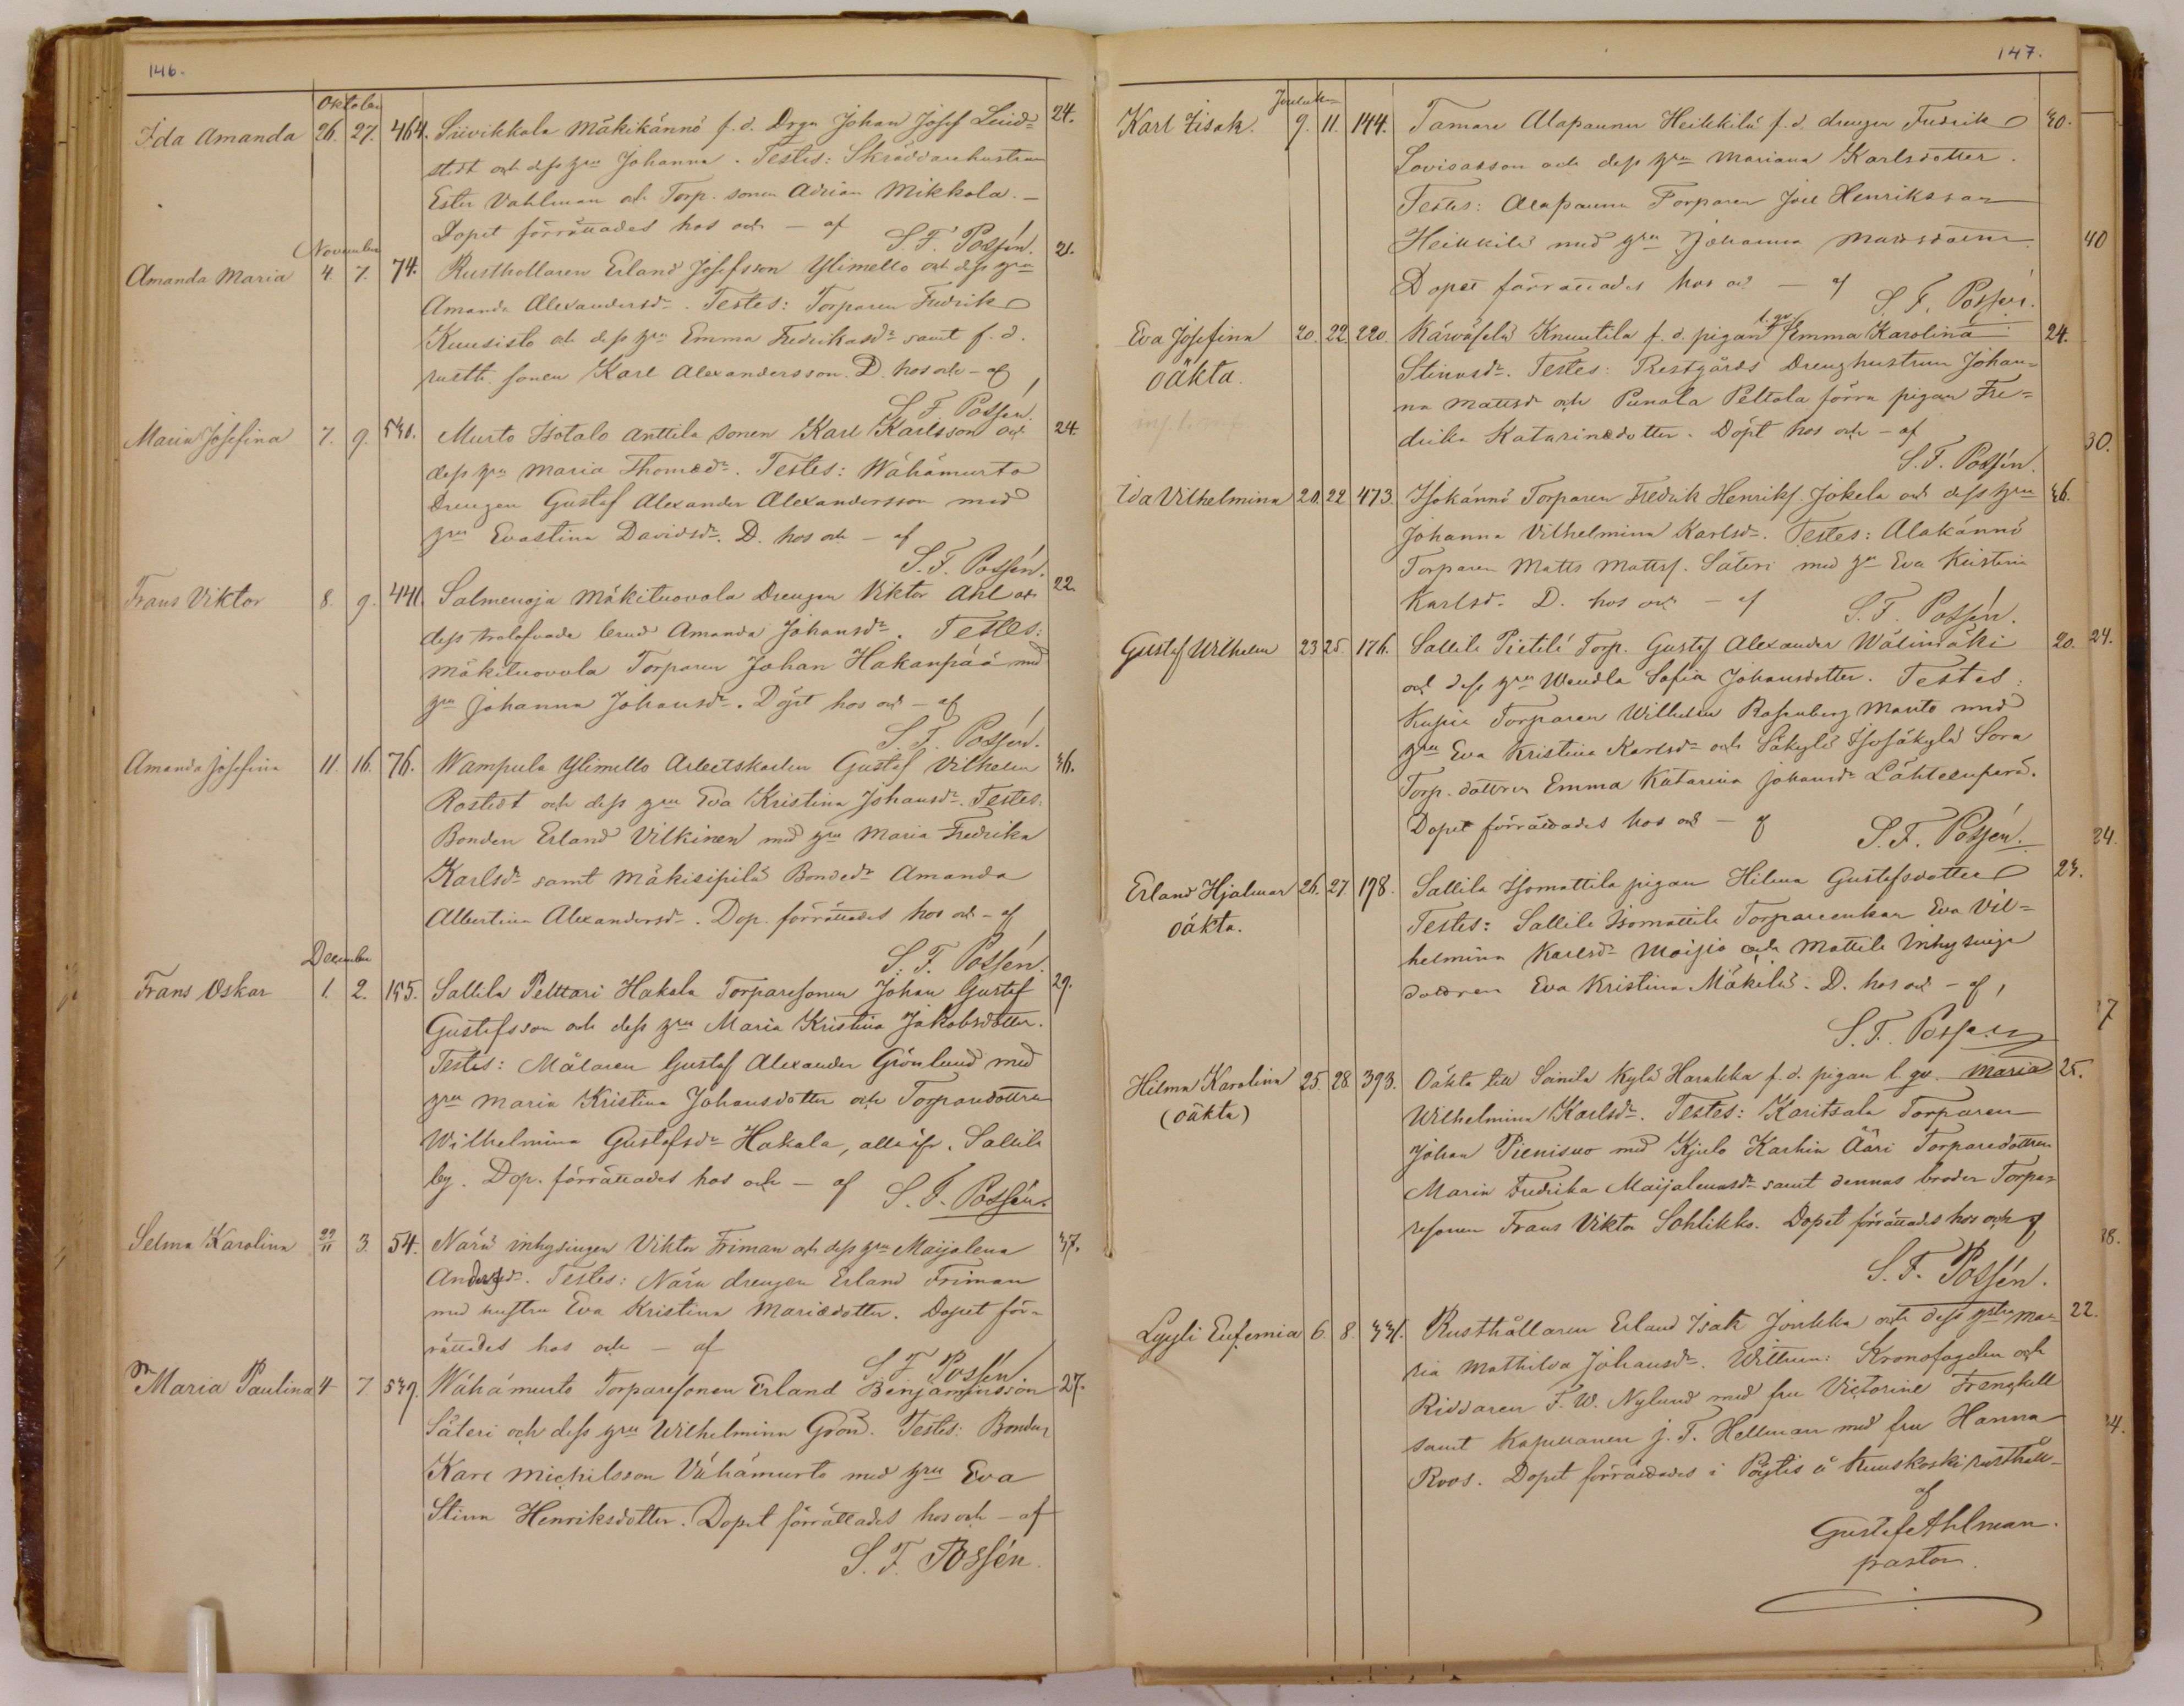 146.
Oktober
Ida Amanda 26. 27. 464. Siivikkala Mäkikännö f. d. Drgn Johan Josef Leid= 24.
stedt och dess hru Johanna. Testes: Skräddarehustrun
Ester Vahlman och Torp. sonen Adrian Mikkola. —
Dopet förrättades hos och — af S. F. Possén.
November
Amanda Maria 4. 7. 74. Rusthollaren Erland Josefsson Ylimello och dess hru 21.
Amanda Alexandersdr. Testes: Torparen Fredrik
Kuusisto och dess hru Emma Fredriksdr samt f. d.
rusth. sonen Karl Alexandersson. D. hos och — af
S. F. Possén.
Maria Josefina 7. 9. 540. Murto Isotalo Anttila sonen Karl Karlsson och 24.
dess hru Maria Thomædr. Testes: Wähämurto
drengen Gustaf Alexander Alexandersson med
hru Evastina Davidsdr. D. hos och — af
S. F. Possén.
Frans Viktor 8. 9. 441. Salmenoja Mäkituovola Drengen Viktor Ahl och 22.
dess trolofvade brud Amanda Johansdr. Testes:
Mäkituovola Torparen Johan Hakanpää med
hru Johanna Johansdr. Döpt hos och — af
S. F. Possén.
Amanda Josefina 11. 16. 76. Wampula Ylimello Arbetskarlen Gustaf Vilhelm 36.
Rostedt och dess hru Eva Kristina Johansdr. Testes:
Bonden Erland Vilkinen med hru Maria Fredrika
Karlsdr samt Mäkisipilä Bondedr Amanda
Albertina Alexandersdr. Dop. förrättades hos och — af
S. F. Possén.
December
Frans Oskar 1. 2. 195. Sallila Pelttari Hakala Torparesonen Johan Gustaf 29.
Gustafsson och dess hru Maria Kristina Jakobsdotter.
Testes: Målaren Gustaf Alexander Grönlund med
hru Maria Kristina Johansdotter och Torparedottren
Wilhelmina Gustafsdr Hakala, alla ifr. Sallila
by. Dop. förrättades hos och — af S. F. Possén.
Selma Karolina 29/11 3. 54. Närä inhysingen Viktor Friman och dess hru Maijalena 37.
Andersdr. Testes: Närä drengen Erland Friman
med hustru Eva Kristina Mariædotter. Dopet för-
rättades hos och — af
S F Possén.
Maria Paulina 4 7. 539. Wähämurto Torparesonen Erland Benjaminsson 27.
Säteri och dess hru Wilhelmina Grön. Testes: Bonden
Karl Michelsson Vähämurto med hru Eva
Stina Henriksdotter. Dopet förrättades hos och — af
S. F. Possén.
147.
Karl Iisak. 9. 11. 144. Tamare Alapaunu Heikkilä f. d. drengen Fredrik 30.
Lovisasson och dess hru Mariana Karlsdotter.
Testes: Alapaunu Torparen Joel Henriksson
Heikkilä med hru Johanna Mattsdotter. 40
Dopet förrättades hos och — af S. F. Possén.
Eva Josefina 20. 22. 220. Kärväselä Knuutila f. d. pigan l. qv. Emma Karolina 24.
oäkta. Stinasdr. Testes: Prestgårds Drenghustrun Johan=
na Mattsdr och Punola Peltola förra pigan Fre=
drika Katarinædotter. Döpt hos och — af
S. F. Possén. 30.
Ida Vilhelmina 20. 22. 473. Isokännö Torparen Fredrik Henriks. Jokela och dess hru 36.
Johanna Vilhelmina Karlsdr. Testes: Alakännö
Torparen Matts Mattss. Säteri med hru Eva Kristina
Karlsdr. D. hos och — af S. F. Possén.
Gustaf Wilhelm 23 25. 176. Sallila Pietilé Torp. Gustaf Alexander Wälimäki 20. 24.
och dess hru Wendla Sofia Johansdotter. Testes:
Torparen Wilhelm Rosenberg med
hru Eva Kristina Karlsdr och Säkylä Isosäkylä Sora
Torp. dottren Emma Katarina Johansdr Lähteenperä.
Dopet förrättades hos och — af S. F. Possén. 24.
Erland Hjalmar 26. 27. 198. Sallila Isomattila pigan Hilma Gustafsdotter 23.
oäkta. Testes: Sallila Isomattila Torpareenkan Eva Vil=
helmina Karlsdr Maijio och Mattila Inhysinge
dottren Eva Kristina Mäkilä. D. hos och — af,
S. F. Possén 7
Hilma Karolina 25 28. 393. Oäkta till Soinila Kylä Harakka f. d. pigan l. qv. Maria 25.
(oäkta) Wilhelmina Karlsdr. Testes: Karitsala Torparen
Johan Pienisuo med Kjulo Karhia Ääri Torparedottren
Maria Fredrika Maijalenasdr samt dennas broder Torpa=
resonen Frans Viktor Sohlikko. Dopet förrättades hos och af
S. F. Possén. 38.
Lyyli Eufemia 6. 8. 331. Rusthållaren Erland Isak Junkka och dess hstru Ma= 22.
ria Mathilda Johansdr. Wittnen: Kronofogden och
Riddaren F. W. Nylund med fru Victorine Frenckell
samt Kapellanen J. F. Hellman med fru Hanna 34.
Roos. Dopet förrättades i Pöytis å rusthåll
af
Gustaf Ahlman.
pastor.